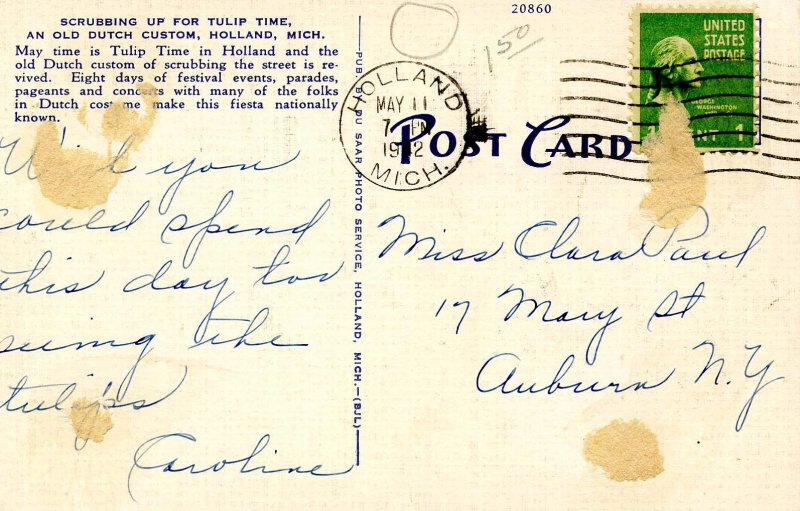 SCRUBBING UP FOR TULIP TIME,
AN OLD DUTCH CUSTOM, HOLLAND, MICH.
May time is Tulip Time in Holland and the
old Dutch custom of scrubbing the street is re-
vived. Eight days of festival events, parades,
pageants and concerts with many of the folks
in Dutch costume make this fiesta nationally
known.
Wish you
could spend
this day too
seeing the
tulips
Caroline
PUB. BY DU SAAR PHOTO SERVICE, HOLLAND, MICH.—(BJL)
20860
1.50
HOLLAND
MAY 11
7 PM
1942
MICH.
POST CARD
UNITED
STATES
POSTAGE
GEORGE
WASHINGTON
1
Miss Clara Paul
17 Mary St
Auburn N.Y